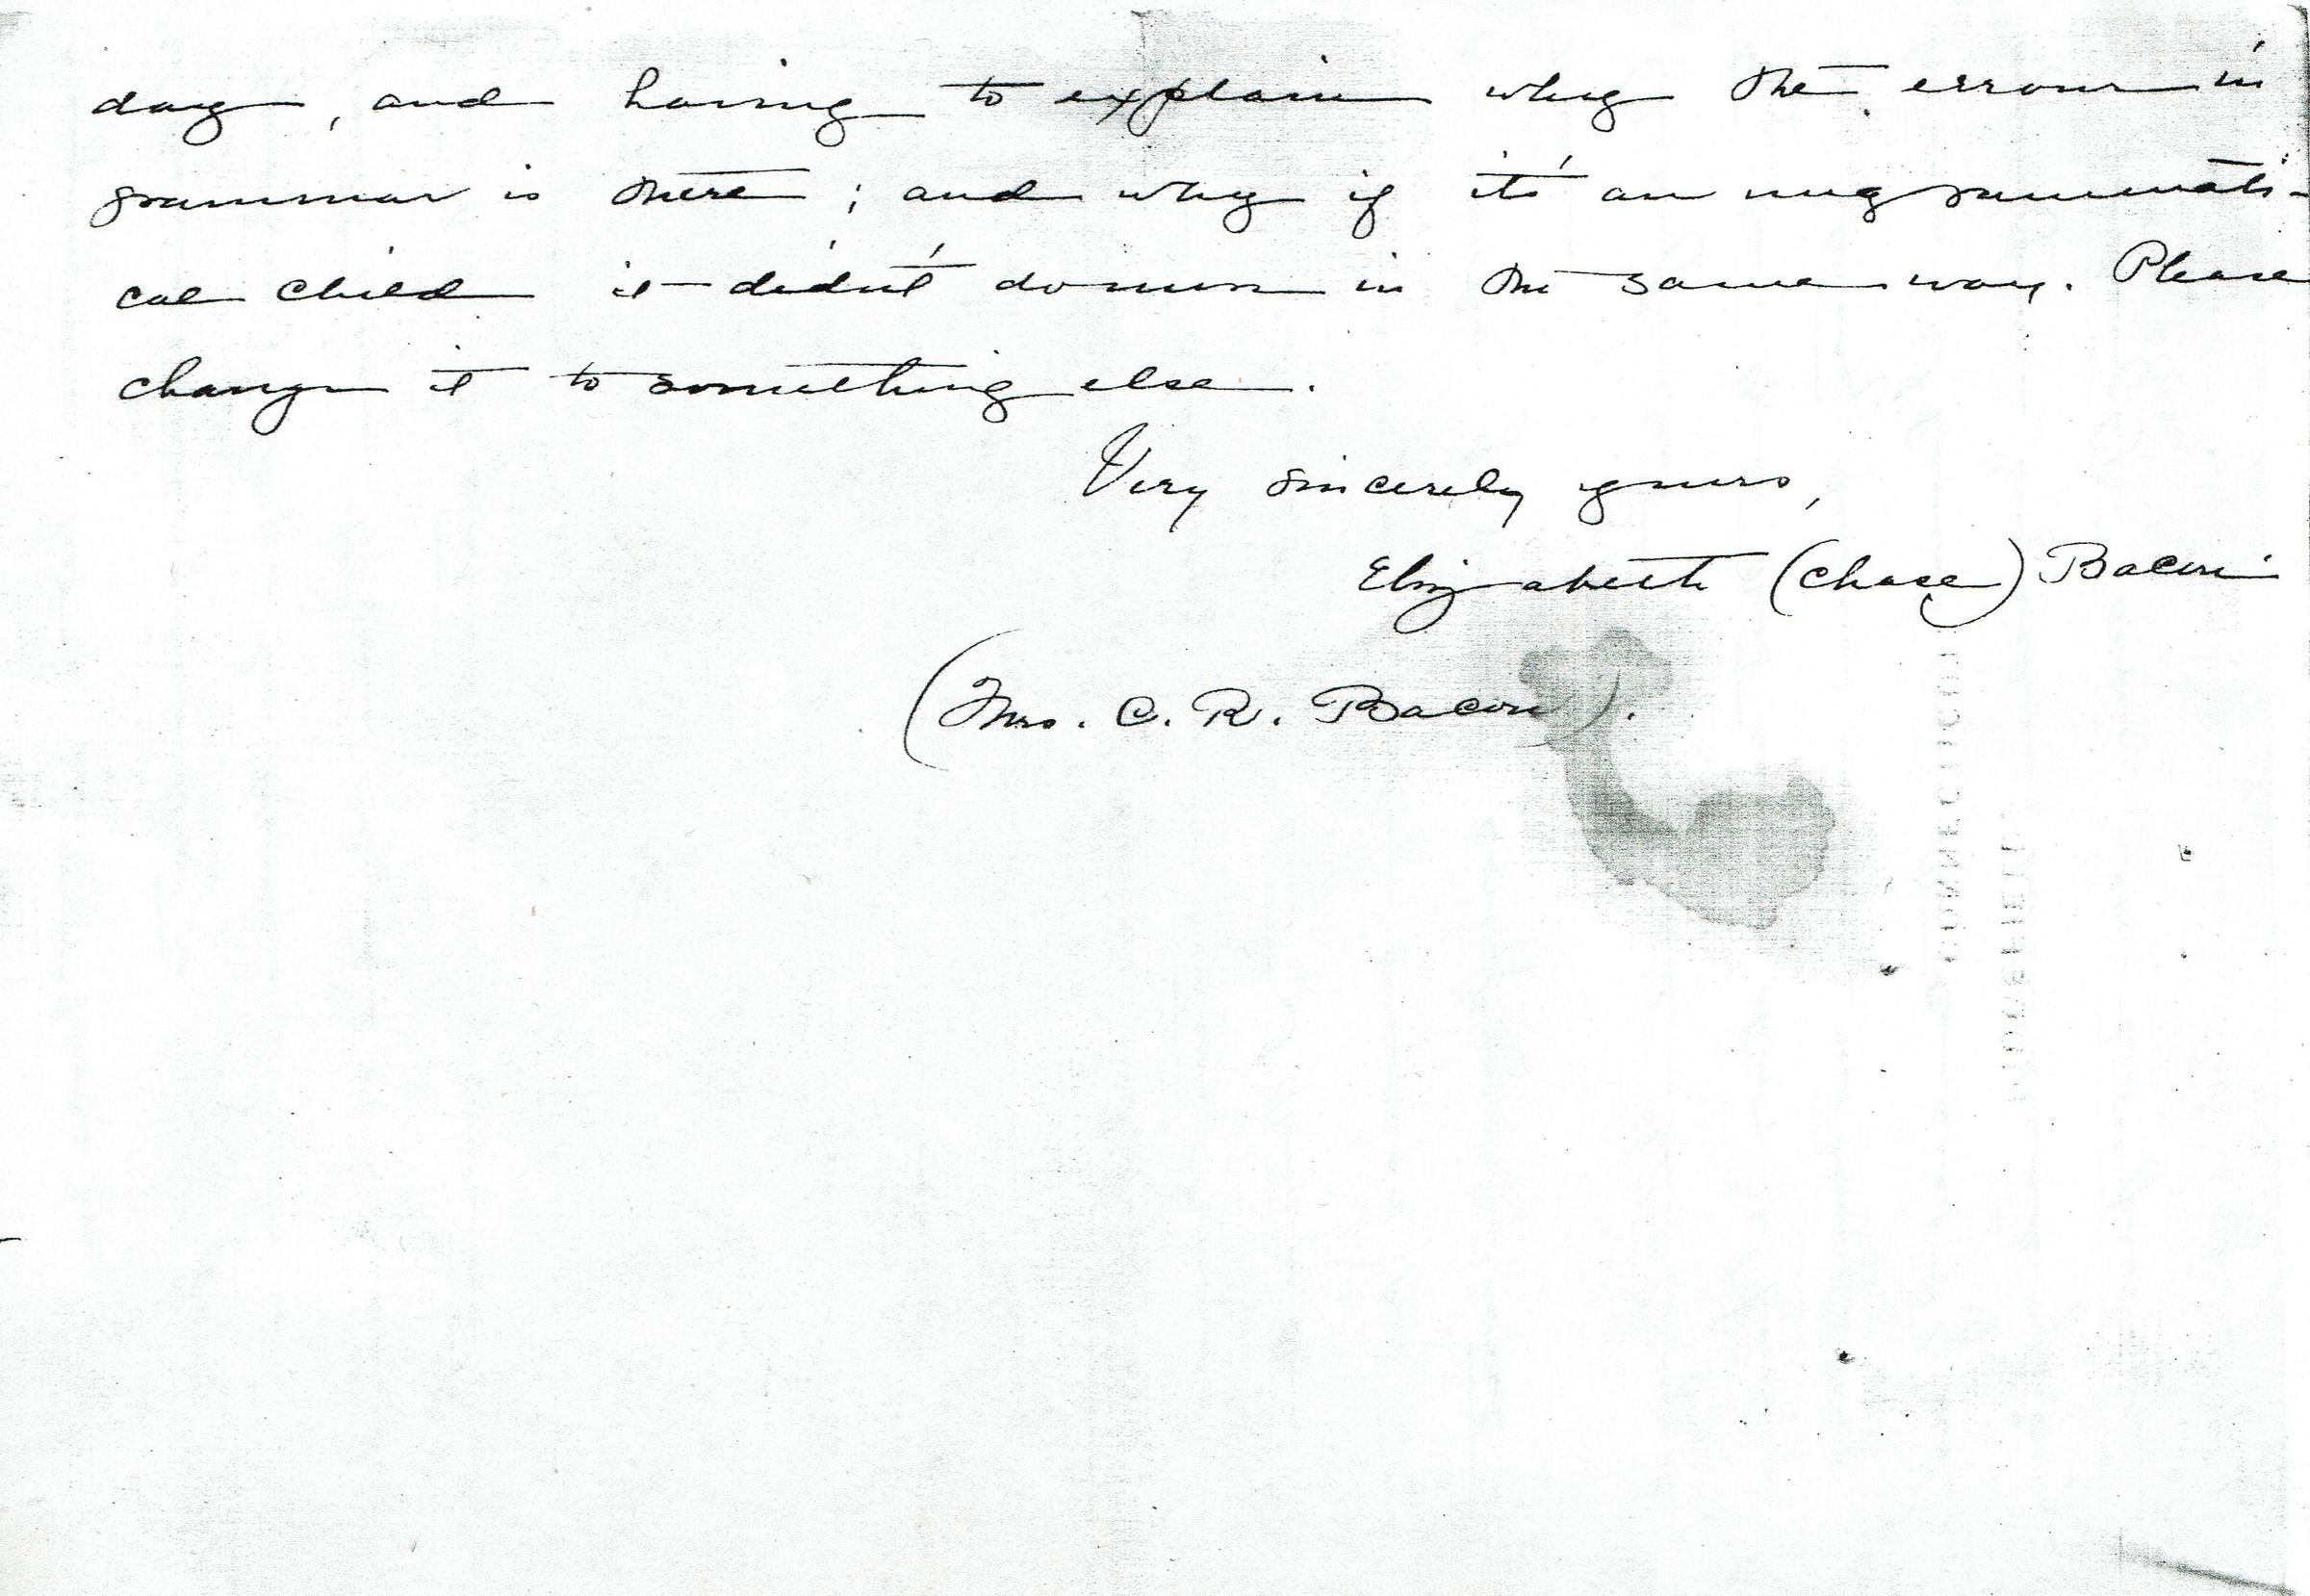 day, and having to explain why the error in
grammar is there; and why if it's an ungrammati-
cal child it didn't down in the same way. Please
change it to something else.
Very sincerely yours,
Elizabeth (Chase) Bacon
(Mrs. C. R. Bacon).